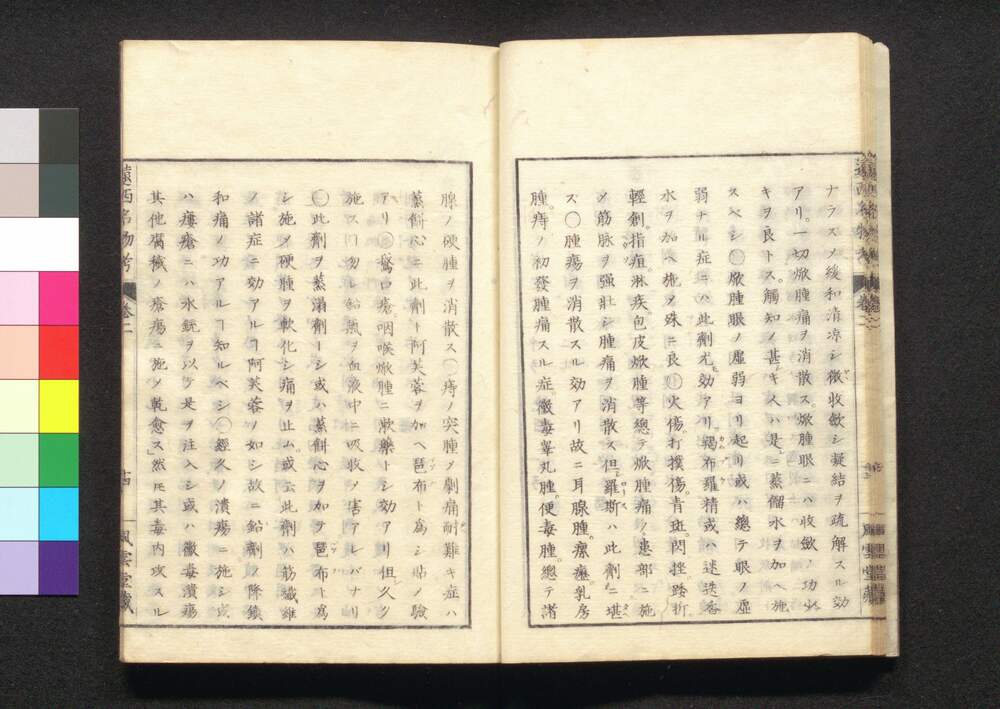 ナラスメ緩和清涼シ微收斂シ凝結ヲ疏解スル効
アリ。一切焮腫痛ヲ消散ス。焮腫眼ニハ收斂ノ功少
キヲ良トス。觸知ノ甚キ人ハ是ニ蒸餾水ヲ加ヘ施
スベシ〇焮腫眼ノ虚弱ヨリ起リ或ハ總テ眼ノ虚
弱ナル症ニハ此劑尤効アリ。羯布羅精或ハ迷迭香
水ヲ加ヘ施メ殊ニ良〇火傷。打撲傷。青斑。閃挫。跌折。
輕創。指疽。淋疾。包皮焮腫等總テ焮腫痛ノ患部ニ施
メ筋脉ヲ强壯シ腫痛ヲ消散ス。但羅斯ハ此劑ニ堪
ズ〇腫瘍ヲ消散スル効アリ故ニ耳腺腫。瘰癧。乳房
腫。痔ノ初發腫痛スル症。黴毒睾丸腫。便毒腫。總テ諸
腺ノ硬腫ヲ消散ス〇痔ノ突腫メ劇痛耐難キ症ハ
蒸餅心ニ此劑ト阿芙蓉ヲ加ヘ琶布ト爲シ貼メ驗
アリ〇鵞口瘡。咽喉焮腫ニ漱藥トシ効アリ但シ久ク
施ス勿レ鉛氣ヲ血液中ニ吸收メ害アレバナリ
〇此劑ヲ蒸溻劑トシ或ハ蒸餅心ヲ加ヲ琶布ト爲
シ施メ硬腫ヲ軟化シ痛ヲ止ム。或云此劑ハ筋纖維
ノ諸症ニ効アルヿ阿芙蓉ノ如シ故ニ鉛劑ノ降鎮
和痛ノ功アルヿ知ルベシ〇經久ノ潰瘍ニ施シ或
ハ瘻瘡ニハ水銃ヲ以テ是ヲ注入シ或ハ黴毒潰瘍
其他腐穢ノ瘡瘍ニ施メ乾愈ス」然𪜈其毒内攻スル
遠西名物考 卷二
十四
風雲堂藏